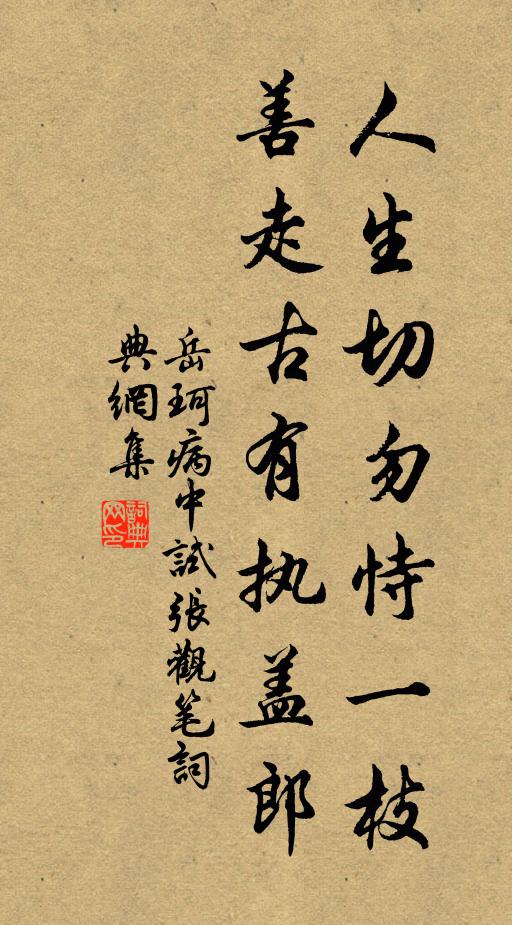 人生切勿恃一枝
善走古有执盖郎
岳珂病中試張觀笔詞
典網集
詞典網印